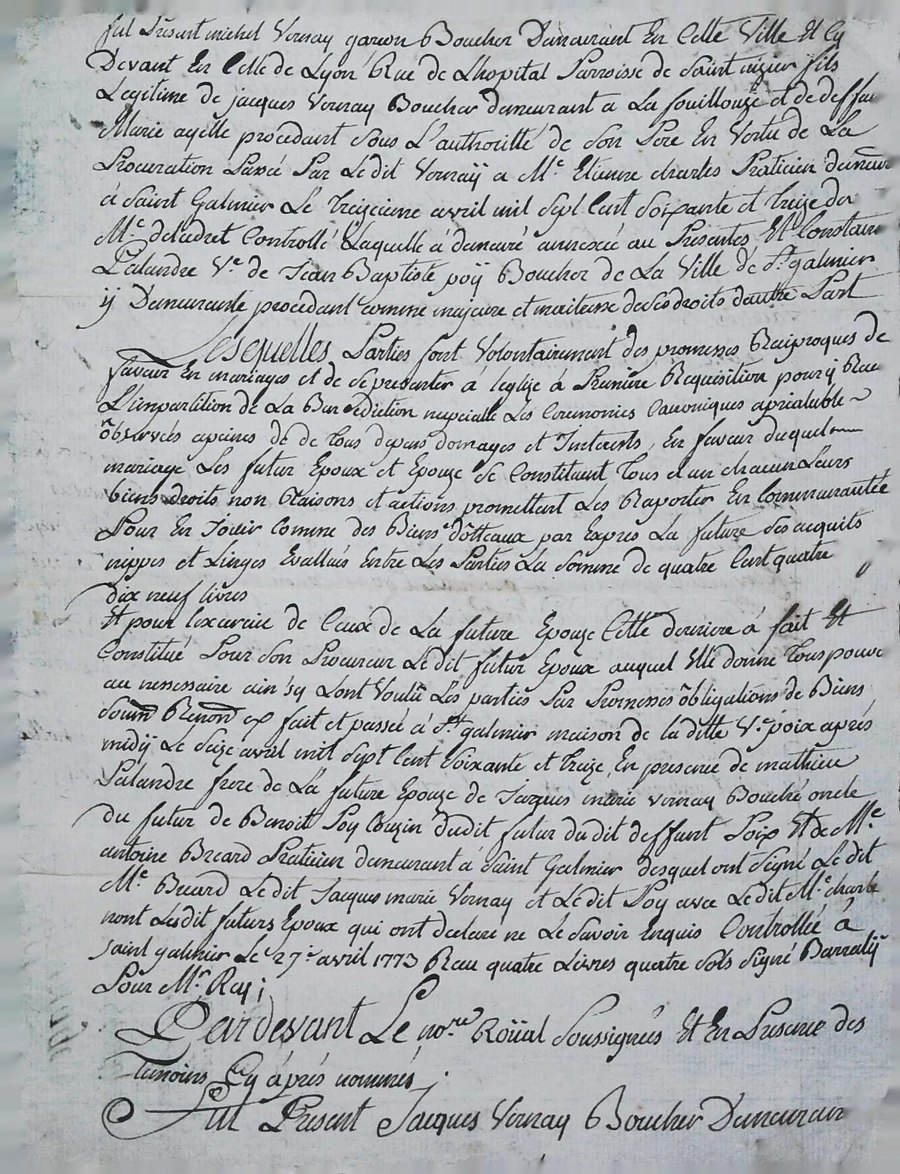 fut Présent michel Vernay garson Boucher Demeurant En Cette Ville Et Cy
Devant En Celle de Lyon Rue de Lhopital Parroisse de Saint nizier fils
Legitime de jacques Vernay Boucher demeurant a La fouillouze et de deffun
Marie ayelle procedant sous L'authorité de son Pere En Vertu de La
Procuration Passé Par Ledit Vernaÿ a Me Etienne charles Praticien demeur
à Saint Galmier Le treizieme avril mil Sept Cent Soixante et treize devt
Me deladret Controllé Laquelle à demeuré annexée au Presentes Et Constan
Palandre Ve de Jean Baptiste poÿ Boucher de La Ville de St galmier
ÿ Demeurante procedant comme majeure et maitresse de ses droits dautre Part
Lesquelles Parties font Volontairement des promesses Reciproques de
faveur En mariages et de se presenter à leglize à Premiere Requisition pour ÿ Rece
L'impartition de La Benediction nupcialle Les Ceremonies Canoniques aprealable
observés apeines de de tous depens domages et Interests, En faveur duquel
mariage Les futur Epoux et Epouze Se Constituent tous et un chacun Leurs
biens droits nom Raisons et actions promettant Les Raporter En Communautée
Pour En Jouir Comme des Biens dotteaux par Exprès La future Ses acquits
nippes et Linges Evallués Entre Les Parties La Somme de quatre Cent quatre
dix neuf livres
Et pour lexercice de Ceux de La future Epouze Cette derniere à fait Et
Constitué Pour Son Procureur Ledit futur Epoux auquel Elle donne tous pouvo
au nessessaire ain'sy Lont Voulû Les parties Par Promesses obligations de Biens
Soum Renon ex fait et passée à St galmier maison de la ditte Ve poix aprés
midÿ Le Seize avril mil Sept Cent Soixante et treize, En presence de mathieu
Palandre frere de La future Epouze de Jacques marie vernay Bouché oncle
du futur de Benoit Poy Couzin dudit futur dudit deffunt Poix Et de Me
antoine Breard Praticien demeurant à Saint Galmier desquel ont Signé Le dit
Me Breard Le dit Jacques marie Vernay et Le dit Poy avec Ledit Me charle
nont Lesdit futurs Epoux qui ont declaré ne Le Savoir Enquis Controllée à
Saint galmier Le 27e avril 1773 Reçu quatre Livres quatre Sols Signé Barralÿ
Pour Mr Rey;
Pardevant Le nore Roÿal Soussignés Et En Presence des
Temoins Cy après nommés;
Fut Present Jacques Vernay Boucher Demeuran